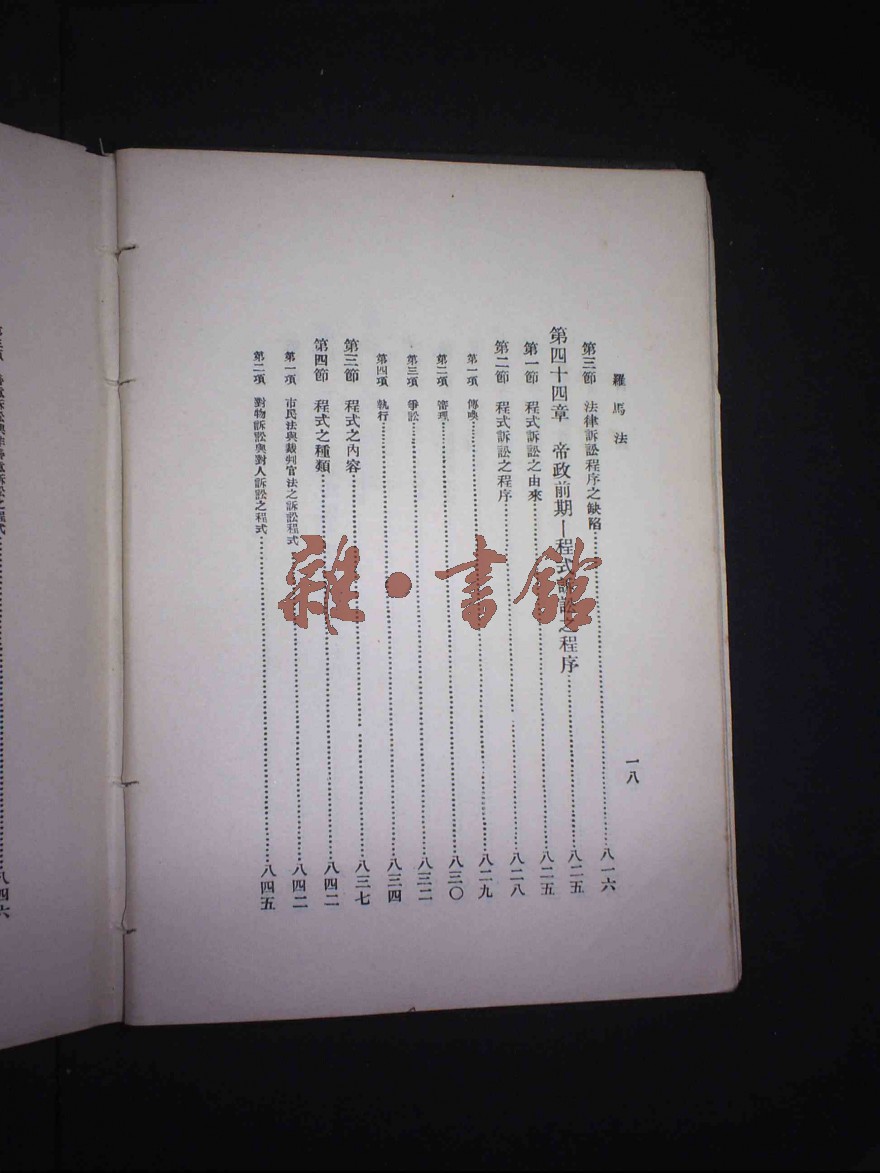 羅馬法
一八
第三節 法律訴訟程序之缺陷……八一六
第四十四章 帝政前期—程式訴訟之程序……八二五
第一節 程式訴訟之由來……八二五
第二節 程式訴訟之程序……八二八
第一項 傳喚……八二九
第二項 審理……八三〇
第三項 爭訟……八三二
第四項 執行……八三四
第三節 程式之內容……八三七
第四節 程式之種類……八四二
第一項 市民法與裁判官法之訴訟程式……八四二
第二項 對物訴訟與對人訴訟之程式……八四五
八四六
雜·書館